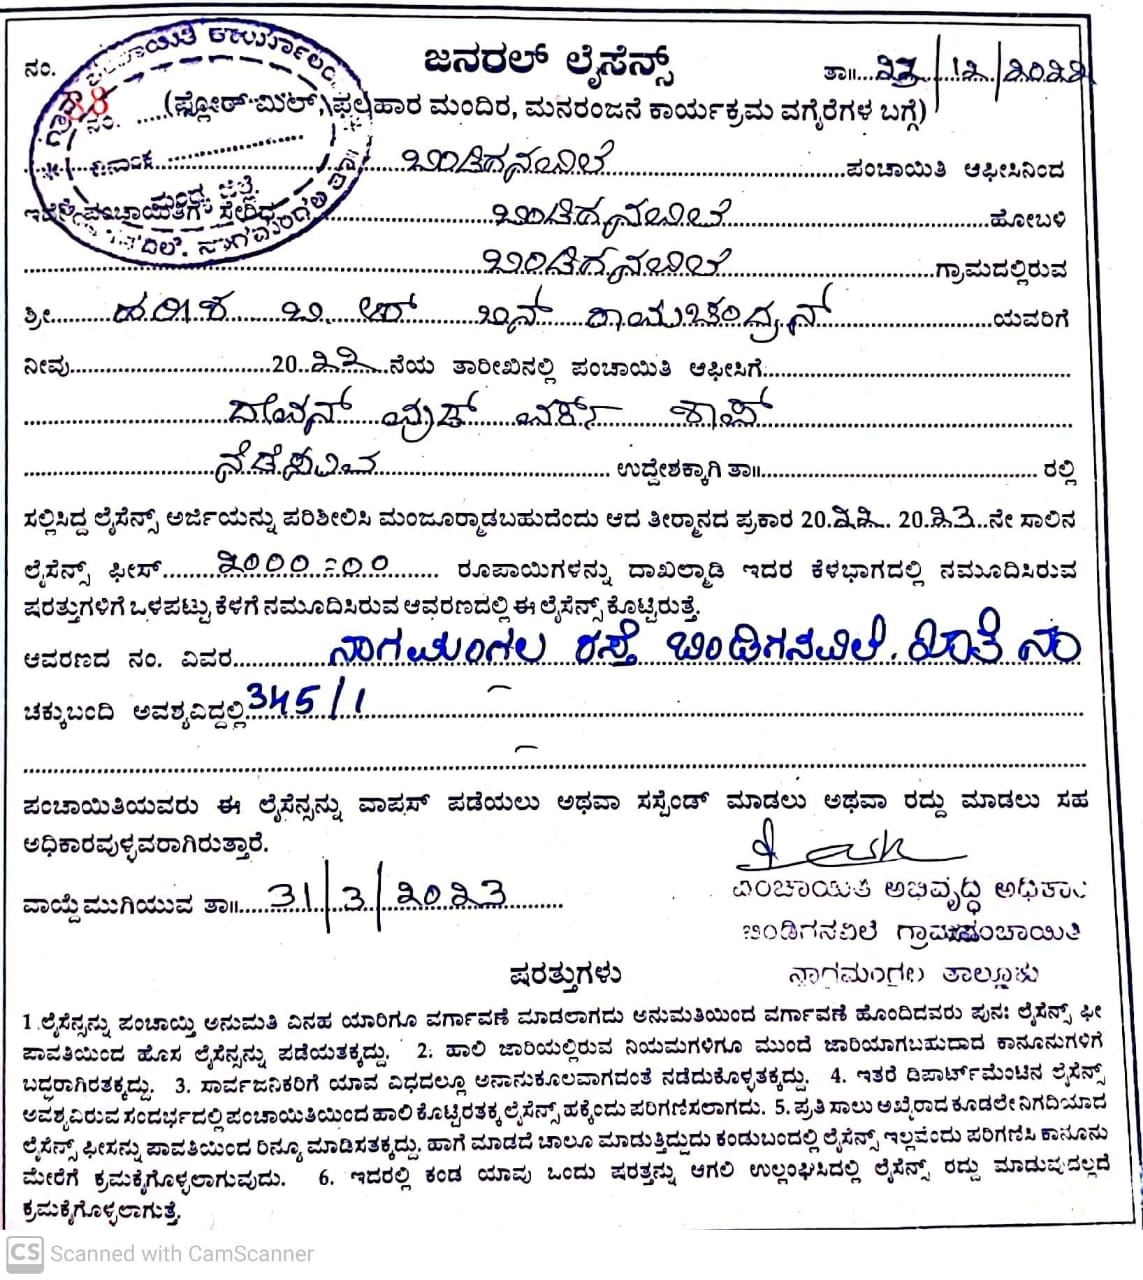 ಜನರಲ್ ಲೈಸೆನ್ಸ್
ನಂ. 38 ತಾ॥ ೨೩/೧೨/೨೦೨೨
(ಫ್ಲೋರ್‌ಮಿಲ್, ಫಲಹಾರ ಮಂದಿರ, ಮನರಂಜನೆ ಕಾರ್ಯಕ್ರಮ ವಗೈರೆಗಳ ಬಗ್ಗೆ)
ನಂ.
ದಿನಾಂಕ
ಮಂಡ್ಯ ಜಿಲ್ಲೆ.
ಬಿಂಡಿಗನವಿಲೆ ಪಂಚಾಯಿತಿ ಆಫೀಸಿನಿಂದ
ಪಂಚಾಯಿತಿಗೆ ಸೇರಿದ ಬಿಂಡಿಗನವಿಲೆ ಹೋಬಳಿ
ಬಿಂಡಿಗನವಿಲೆ ಗ್ರಾಮದಲ್ಲಿರುವ
ಶ್ರೀ ಹರೀಶ ಬಿ. ಆರ್ ಬಿನ್ ರಾಮಚಂದ್ರನ್ ಯವರಿಗೆ
ನೀವು 20 ೨೨ ನೆಯ ತಾರೀಖಿನಲ್ಲಿ ಪಂಚಾಯಿತಿ ಆಫೀಸಿಗೆ
ವುಡ್ ವರ್ಕ್ಸ್ ಶಾಪ್
ನೆಡೆಸುವ ಉದ್ದೇಶಕ್ಕಾಗಿ ತಾ॥ ರಲ್ಲಿ
ಸಲ್ಲಿಸಿದ್ದ ಲೈಸೆನ್ಸ್ ಅರ್ಜಿಯನ್ನು ಪರಿಶೀಲಿಸಿ ಮಂಜೂರ್ಮಾಡಬಹುದೆಂದು ಆದ ತೀರ್ಮಾನದ ಪ್ರಕಾರ 20 ೨೨ 20 ೨೩ ನೇ ಸಾಲಿನ
ಲೈಸೆನ್ಸ್ ಫೀಸ್ ೨೦೦೦=೦೦ ರೂಪಾಯಿಗಳನ್ನು ದಾಖಲ್ಮಾಡಿ ಇದರ ಕೆಳಭಾಗದಲ್ಲಿ ನಮೂದಿಸಿರುವ
ಷರತ್ತುಗಳಿಗೆ ಒಳಪಟ್ಟು ಕೆಳಗೆ ನಮೂದಿಸಿರುವ ಆವರಣದಲ್ಲಿ ಈ ಲೈಸೆನ್ಸ್ ಕೊಟ್ಟಿರುತ್ತೆ.
ಆವರಣದ ನಂ. ವಿವರ ನಾಗಮಂಗಲ ರಸ್ತೆ ಬಿಂಡಿಗನವಿಲೆ. ಖಾತೆ ನಂ
ಚಕ್ಕುಬಂದಿ ಅವಶ್ಯವಿದ್ದಲ್ಲಿ 345/1
ಪಂಚಾಯಿತಿಯವರು ಈ ಲೈಸೆನ್ಸನ್ನು ವಾಪಸ್ ಪಡೆಯಲು ಅಥವಾ ಸಸ್ಪೆಂಡ್ ಮಾಡಲು ಅಥವಾ ರದ್ದು ಮಾಡಲು ಸಹ
ಅಧಿಕಾರವುಳ್ಳವರಾಗಿರುತ್ತಾರೆ.
ವಾಯ್ದೆ ಮುಗಿಯುವ ತಾ॥ 31/3/೨೦೨3
ಪಂಚಾಯಿತಿ ಅಭಿವೃದ್ಧಿ ಅಧಿಕಾರಿ
ಬಿಂಡಿಗನವಿಲೆ ಗ್ರಾಮಪಂಚಾಯಿತಿ
ನಾಗಮಂಗಲ ತಾಲ್ಲೂಕು
ಷರತ್ತುಗಳು
1. ಲೈಸೆನ್ಸನ್ನು ಪಂಚಾಯ್ತಿ ಅನುಮತಿ ವಿನಹ ಯಾರಿಗೂ ವರ್ಗಾವಣೆ ಮಾಡಲಾಗದು ಅನುಮತಿಯಿಂದ ವರ್ಗಾವಣೆ ಹೊಂದಿದವರು ಪುನಃ ಲೈಸೆನ್ಸ್ ಫೀ
ಪಾವತಿಯಿಂದ ಹೊಸ ಲೈಸೆನ್ಸನ್ನು ಪಡೆಯತಕ್ಕದ್ದು. 2. ಹಾಲಿ ಜಾರಿಯಲ್ಲಿರುವ ನಿಯಮಗಳಿಗೂ ಮುಂದೆ ಜಾರಿಯಾಗಬಹುದಾದ ಕಾನೂನುಗಳಿಗೆ
ಬದ್ಧರಾಗಿರತಕ್ಕದ್ದು. 3. ಸಾರ್ವಜನಿಕರಿಗೆ ಯಾವ ವಿಧದಲ್ಲೂ ಅನಾನುಕೂಲವಾಗದಂತೆ ನಡೆದುಕೊಳ್ಳತಕ್ಕದ್ದು. 4. ಇತರೆ ಡಿಪಾರ್ಟ್‌ಮೆಂಟಿನ ಲೈಸೆನ್ಸ್
ಅವಶ್ಯವಿರುವ ಸಂದರ್ಭದಲ್ಲಿ ಪಂಚಾಯಿತಿಯಿಂದ ಹಾಲಿ ಕೊಟ್ಟಿರತಕ್ಕ ಲೈಸೆನ್ಸ್ ಹಕ್ಕೆಂದು ಪರಿಗಣಿಸಲಾಗದು. 5. ಪ್ರತಿ ಸಾಲು ಅಖೈರಾದ ಕೂಡಲೇ ನಿಗದಿಯಾದ
ಲೈಸೆನ್ಸ್ ಫೀಸನ್ನು ಪಾವತಿಯಿಂದ ರಿನ್ಯೂ ಮಾಡಿಸತಕ್ಕದ್ದು. ಹಾಗೆ ಮಾಡದೆ ಚಾಲೂ ಮಾಡುತ್ತಿದ್ದುದು ಕಂಡುಬಂದಲ್ಲಿ ಲೈಸೆನ್ಸ್ ಇಲ್ಲವೆಂದು ಪರಿಗಣಿಸಿ ಕಾನೂನು
ಮೇರೆಗೆ ಕ್ರಮಕೈಗೊಳ್ಳಲಾಗುವುದು. 6. ಇದರಲ್ಲಿ ಕಂಡ ಯಾವು ಒಂದು ಷರತ್ತನ್ನು ಆಗಲಿ ಉಲ್ಲಂಘಿಸಿದಲ್ಲಿ ಲೈಸೆನ್ಸ್ ರದ್ದು ಮಾಡುವುದಲ್ಲದೆ
ಕ್ರಮಕೈಗೊಳ್ಳಲಾಗುತ್ತೆ.
CS Scanned with CamScanner